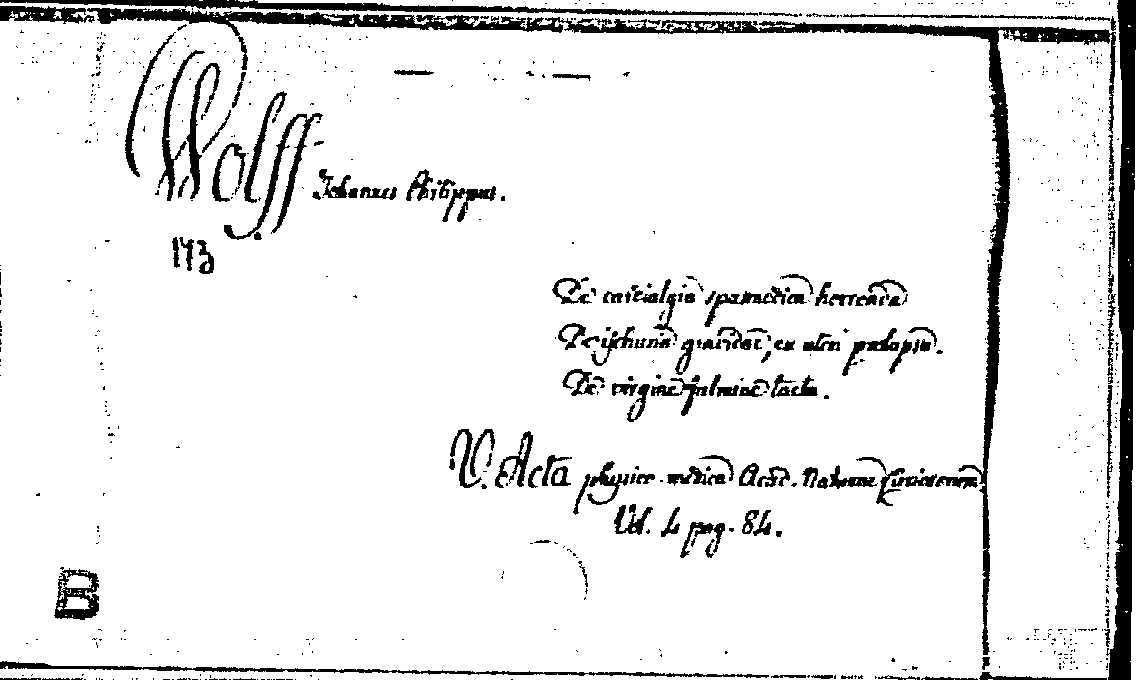 Wolff Johannes Philippus.
173
De cardialgia spasmodica horrenda
De ischuria gravidae, ex uteri prolapsu.
De virgine fulmine tacta.
V. Acta physico-medica Acad. Naturae Curiosorum
Vol. 4 pag. 84.
B